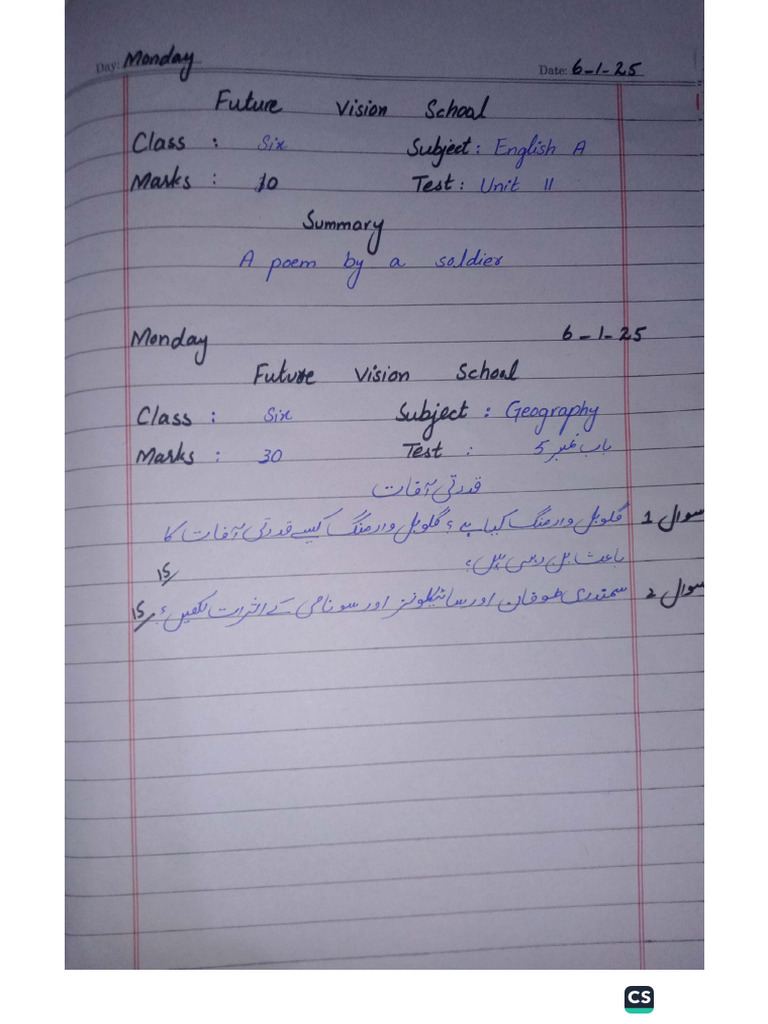 Day: Monday Date: 6-1-25
Future Vision School
Class : Six Subject : English A
Marks : 10 Test : Unit 11
Summary
A poem by a soldier
Monday 6-1-25
Future Vision School
Class : Six Subject : Geography
Marks : 30 Test : باب نمبر 5
قدرتی آفات
سوال 1 گلوبل وارمنگ کیا ہے؟ گلوبل وارمنگ کیسے قدرتی آفات کا
باعث بن رہی ہیں؟ 15/
سوال 2 سمندری طوفان اور سائیکلونز اور سونامی کے اثرات لکھیں؟ 15/
CS